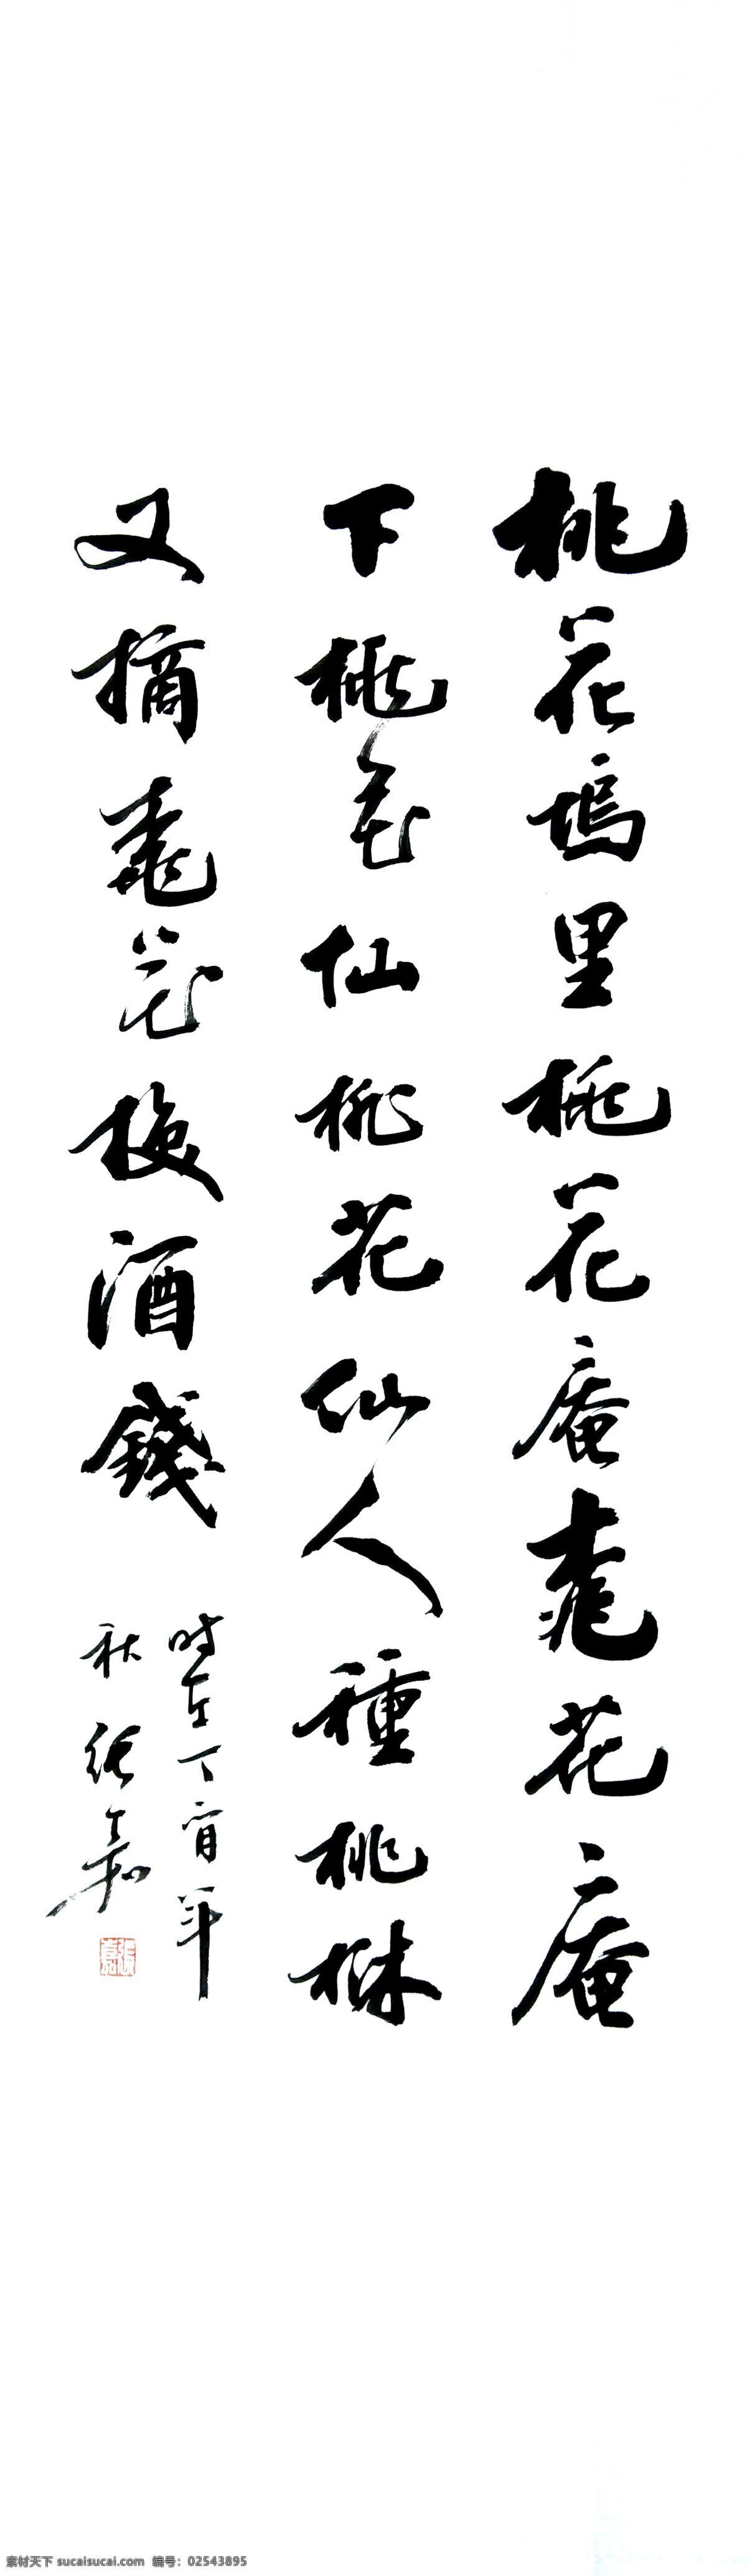 桃花塢里桃花庵桃花庵
下桃花仙桃花仙人種桃樹
又摘桃花換酒錢
时在丁酉年
秋张嘉
素材天下 sucaisucai.com 编号：02543895